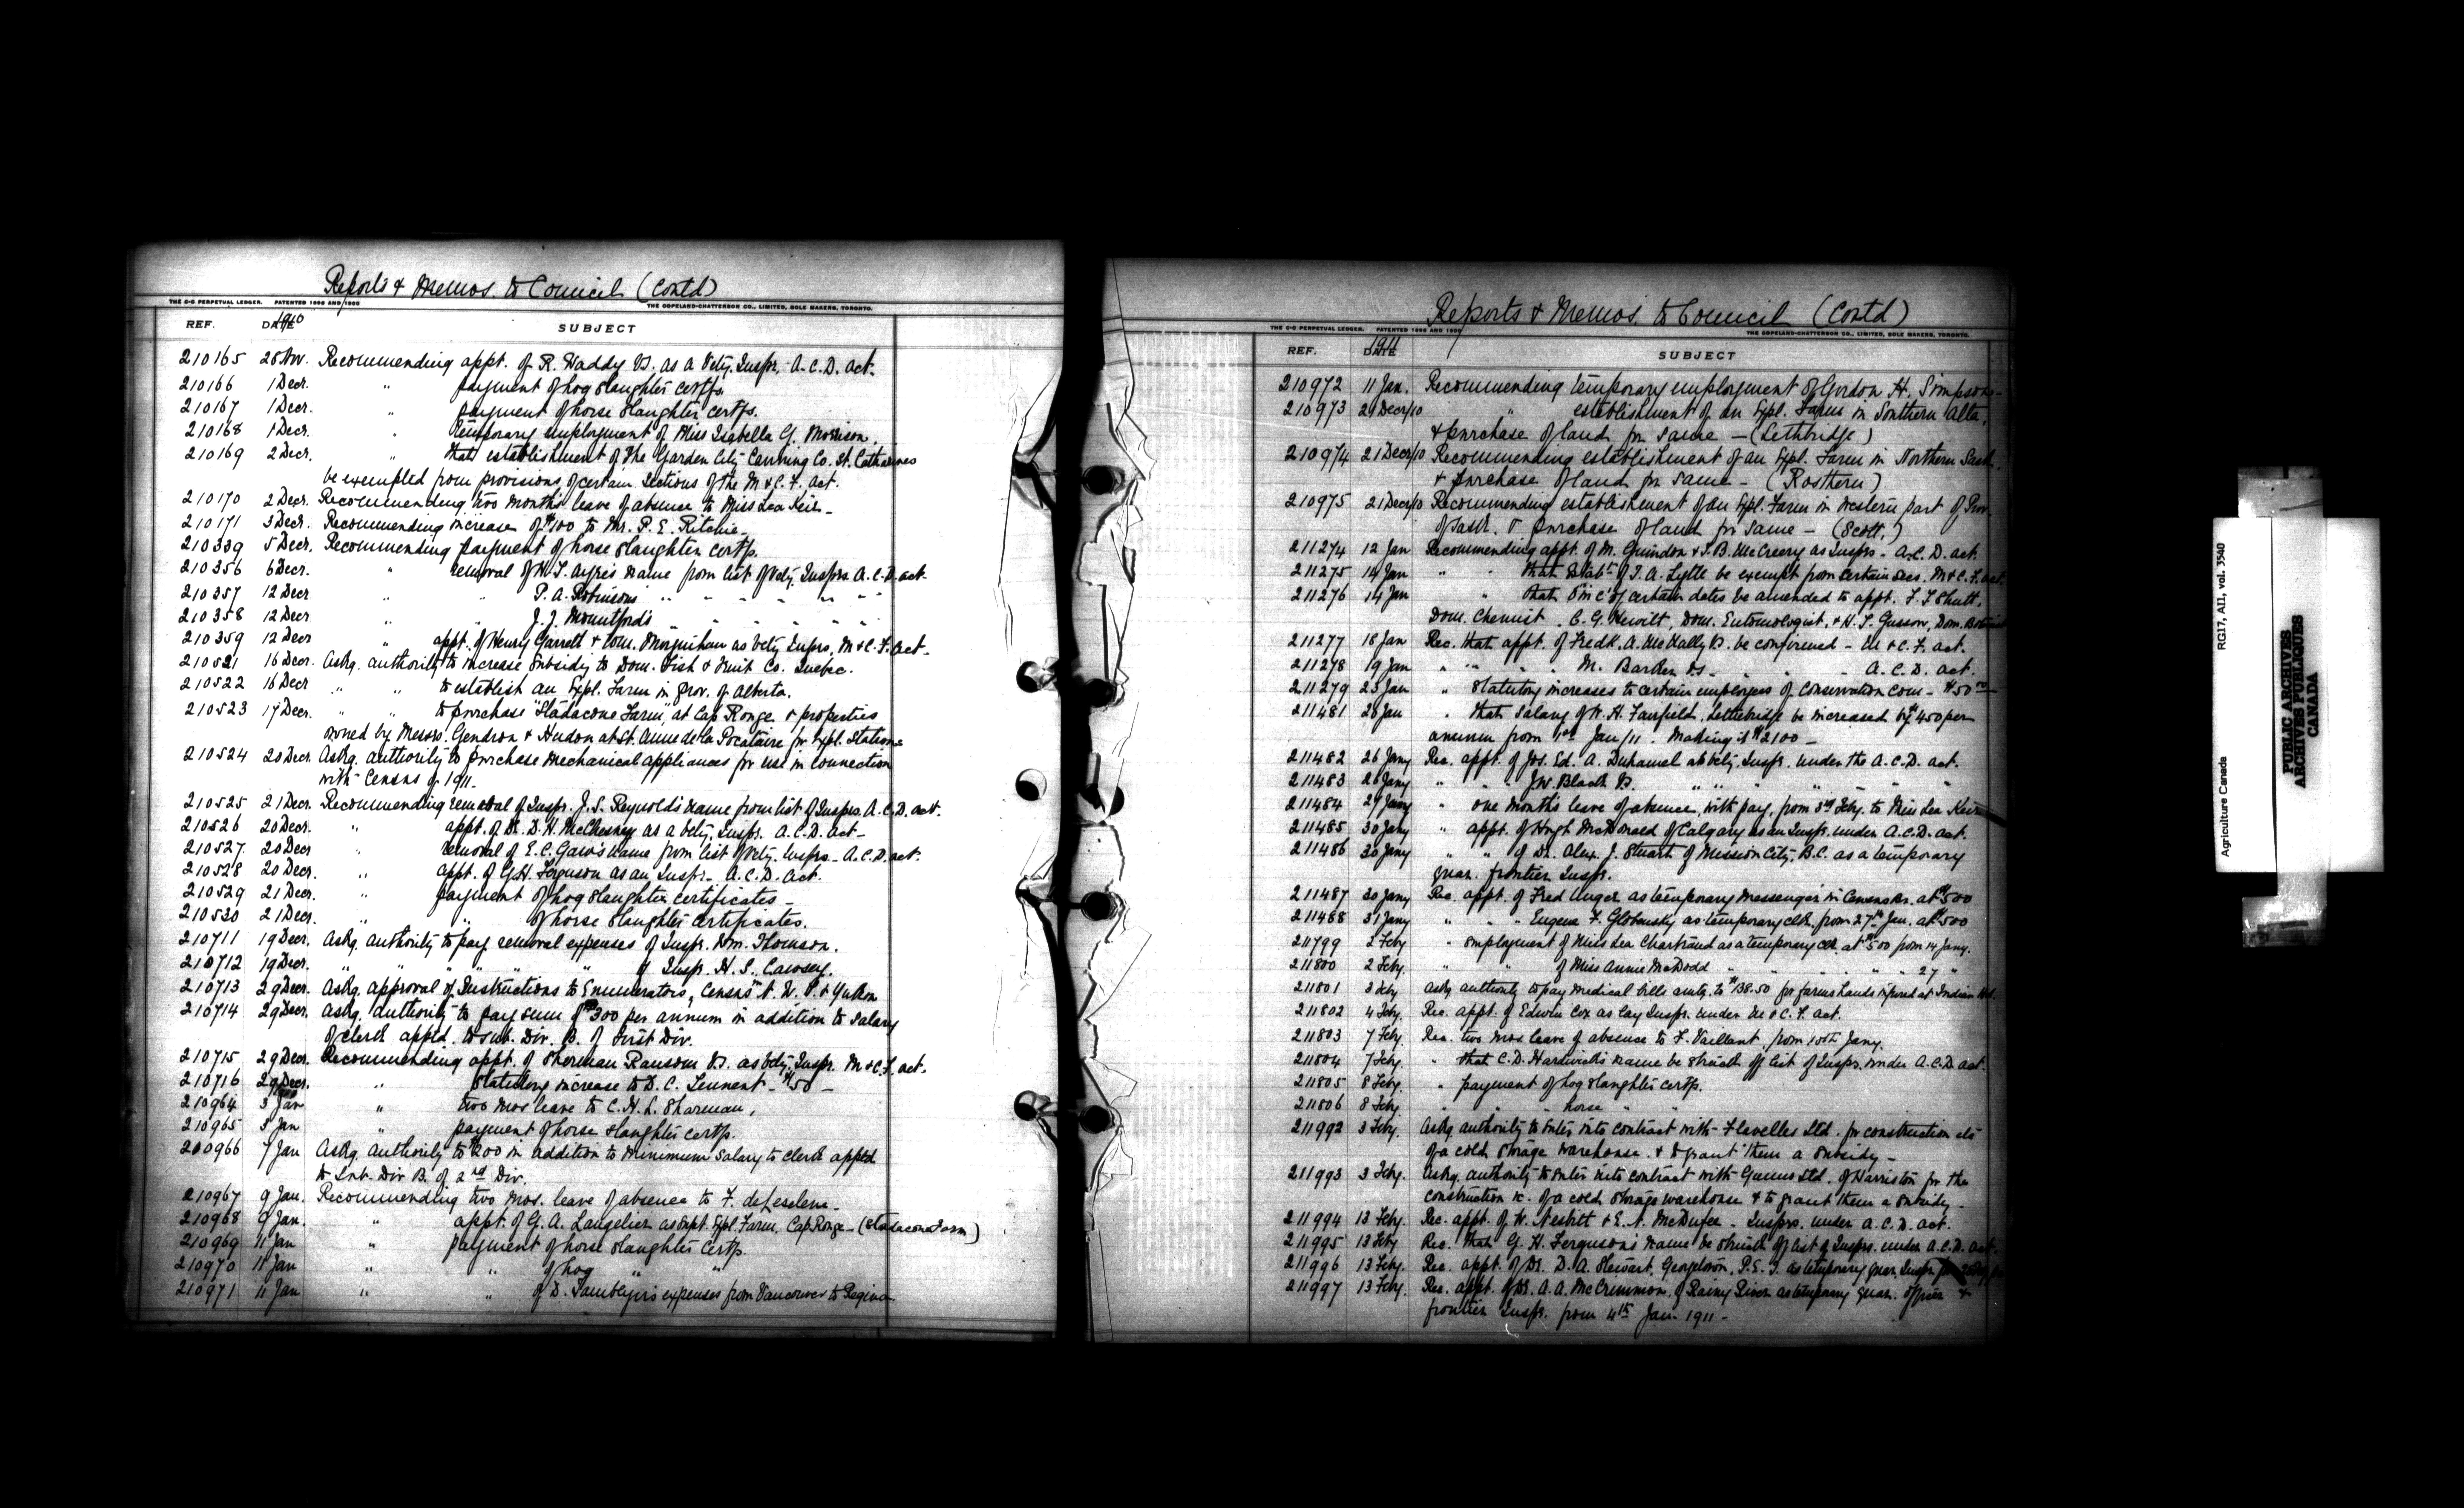 Reports & Memos. to Council (Contd)
THE C-C PERPETUAL LEDGER. PATENTED 1898 AND 1906
THE COPELAND-CHATTERSON CO., LIMITED, SOLE MAKERS, TORONTO.
REF. DATE 1910 SUBJECT
210165 28 Nov. Recommending appt. of R. Waddy V.S. as a Vety. Inspr. A.C.D. act.
210166 1 Decr. " payment of hog slaughter certfs.
210167 1 Decr. " payment of horse slaughter certfs.
210168 1 Decr. " temporary employment of Miss Isabella G. Morrison.
210169 2 Decr. " that establishment of The Garden City Canning Co. St. Catharines
be exempted from provisions of certain Sections of the M & C. F. act.
210170 2 Decr. Recommending two months leave of absence to Miss Lea Keir -
210171 3 Decr. Recommending increase of $100 to Mr. P. E. Ritchie -
210339 5 Decr. Recommending payment of horse slaughter certfs.
210356 6 Decr. " removal of W. T. Ayres name from list of Vety. Insprs. A.C.D. act.
210357 12 Decr " " P. A. Robinsons " " " " " "
210358 12 Decr " " J. J. Mountford's " " " " " "
210359 12 Decr " appt. of Henry Garrett & Wm. Moynihan as Vety. Insprs. M & C. F. act -
210521 16 Decr. Askg. authority to increase subsidy to Dom. Fish & Fruit Co. Quebec.
210522 16 Decr " " to establish an Expl. Farm in Prov. of Alberta.
210523 17 Decr. " " to purchase "Stadacone Farm", at Cap Rouge & properties
owned by Messrs. Gendron & Hudon at St. Anne de la Pocatiere for Expl. Stations
210524 20 Decr Askg. authority to purchase mechanical appliances for use in connection
with Census of 1911.
210525 21 Decr. Recommending removal of Inspr. J. S. Reynold's name from list of Insprs. A.C.D. act.
210526 20 Decr. " appt. of Dr. D. H. McChesney as a Vety. Inspr. A.C.D. act -
210527 20 Decr " removal of E. C. Gaw's name from list of Vety. Insprs - A.C.D. act.
210528 20 Decr. " appt. of G. H. Ferguson as an Inspr - A.C.D. act.
210529 21 Decr. " payment of hog slaughter certificates -
210530 21 Decr. " " of horse slaughter certificates.
210711 19 Decr. Askg. authority to pay removal expenses of Inspr. Wm. Thomson.
210712 19 Decr. " " " " " of Inspr. H. S. Cawsey.
210713 29 Decr. Askg. approval of Instructions to Enumerators, Census N. W. T. & Yukon
210714 29 Decr. Askg. authority to pay sum of $300 per annum in addition to salary
of clerk apptd. to sub. Div. B. of First Div.
210715 29 Decr. Recommending appt. of Sherman Ransom V.S. as Vety. Inspr. M & C. F. act.
210716 29 Decr. " Statutory increase to D. C. Tennent - $50 -
210964 3 Jan " two mos leave to C. H. L. Sharman,
210965 5 Jan " payment of horse slaughter certfs.
210966 7 Jan Askg. authority to $200 in addition to minimum salary to clerk apptd
to Sub. Div B. of 2nd Div.
210967 9 Jan. Recommending two mos. leave of absence to F.
210968 9 Jan. " appt. of G. A. Langelier as Supt. Expl. Farm, Cap Rouge - (Stadacona Farm)
210969 11 Jan " payment of horse slaughter certfs.
210970 11 Jan " " of hog " "
210971 11 Jan " " of D. Tamblyn's expenses from Vancouver to Regina
Reports & Memos. to Council (Contd)
THE C-C PERPETUAL LEDGER. PATENTED 1898 AND 1906
THE COPELAND-CHATTERSON CO., LIMITED, SOLE MAKERS, TORONTO.
REF. DATE 1911 SUBJECT
210972 11 Jan. Recommending temporary employment of Gordon H. Simpson -
210973 21 Decr/10 " establishment of an Expl. Farm in Southern Alta.
& purchase of land for same - (Lethbridge)
210974 21 Decr/10 Recommending establishment of an Expl. Farm in Northern Sask.
& purchase of land for same - (Rosthern)
210975 21 Decr/10 Recommending establishment of an Expl. Farm in western part of Prov.
of Sask. & purchase of land for same - (Scott.)
211274 12 Jan Recommending appt. of M. Guindon & J. B. McCreery as Insprs - A.C.D. act.
211275 14 Jan " " that Estabt. of T. A. Lytle be exempt from certain secs. M & C. F. act.
211276 14 Jan " that O in C of certain dates be amended to appt. F. T. Shutt,
Dom. Chemist. C. G. Hewitt, Dom. Entomologist, & H. T. Gussow, Dom. Botanist
211277 18 Jan Rec. that appt. of Fredk. A. McNally V.S. be confirmed - M & C. F. act.
211278 19 Jan " " " " M. Barker V.S. " " - A.C.D. act.
211279 23 Jan " Statutory increases to certain employees of Conservation Com - $50 00
211481 26 Jan " that salary of W. H. Fairfield, Lethbridge be increased by $450 per
annum from 1st Jan/11. Making it $2100 -
211482 26 Jany Rec. appt. of Jos. Ed. A. Duhamel as Vety. Inspr. under the A.C.D. act.
211483 26 Jany " " J. W. Black V.S. " " " " "
211484 27 Jany " one months leave of absence, with pay, from 3rd Feby. to Miss Lea Keir
211485 30 Jany " appt. of Hugh McDonald of Calgary as an Inspr. under A.C.D. act.
211486 30 Jany " " of Dr. Alex. J. Stuart of Mission City, B.C. as a temporary
quar. frontier Inspr.
211487 30 Jany Rec. appt. of Fred Unger as temporary messenger in Census Br. at $500
211488 31 Jany " " " Eugene F. Globensky as temporary clk. from 27th Jan. at $500
211799 2 Feby " employment of Miss Lea Chartrand as a temporary clk at $500 from 14 Jany.
211800 2 Feby. " " of Miss Annie McDodd " " " " " 27 "
211801 3 Feby Askg. authority to pay medical bills amtg. to $138.50 for farm hands injured at Indian Hd.
211802 4 Feby. Rec. appt. of Edwin Cox as Lay Inspr. under M & C. F. act.
211803 7 Feby. Rec. two mos. leave of absence to F. Vaillant, from 10th Jany.
211804 7 Feby. " that C. D. Hardwick's name be struck off list of Insprs. under A.C.D. act.
211805 8 Feby. " payment of hog slaughter certfs.
211806 8 Feby. " " " horse " "
211992 3 Feby. Askg authority to enter into contract with Flavelles Ltd. for construction etc
of a cold storage warehouse. & to grant them a subsidy -
211993 3 Feby. Askg. authority to enter into contract with Gunns Ltd. of Harriston for the
construction &c. of a cold storage warehouse & to grant them a subsidy -
211994 13 Feby. Rec. appt. of W. Nesbitt & E. A. - Insprs. under A.C.D. act.
211995 13 Feby Rec. that G. H. Ferguson's name be struck off list of Insprs. under A.C.D. act.
211996 13 Feby. Rec. appt. of Dr. D. A. Stewart, Georgetown, P.E.I. as temporary quar. Inspr.
211997 13 Feby. Rec. appt. of Dr. A. A. McCrimmon, of Rainy River as temporary quar. officer &
frontier Inspr. from 4th Jan 1911 -
Agriculture Canada RG17, A11, vol. 3540
PUBLIC ARCHIVES
ARCHIVES PUBLIQUES
CANADA